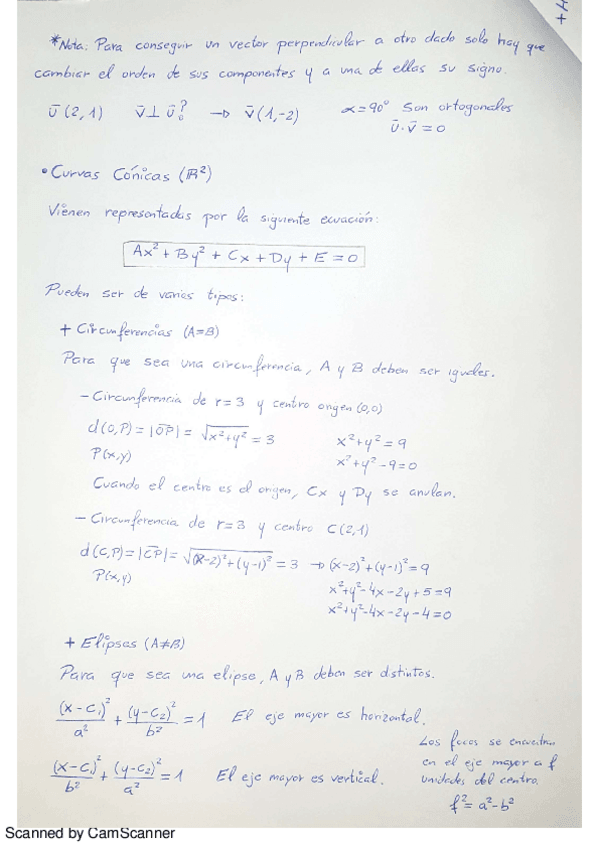 *Nota: Para conseguir un vector perpendicular a otro dado solo hay que
cambiar el orden de sus componentes y a una de ellas su signo.
ū(2,1) v̄⊥ū? → v̄(1,-2) α=90° Son ortogonales
ū·v̄=0
• Curvas Cónicas (ℝ²)
Vienen representadas por la siguiente ecuación:
Ax²+By²+Cx+Dy+E=0
Pueden ser de varios tipos:
+ Circunferencias (A=B)
Para que sea una circunferencia, A y B deben ser iguales.
- Circunferencia de r=3 y centro origen (0,0)
d(O,P)=|OP|=√x²+y²=3 x²+y²=9
P(x,y) x²+y²-9=0
Cuando el centro es el origen, Cx y Dy se anulan.
- Circunferencia de r=3 y centro C(2,1)
d(C,P)=|CP|=√(x-2)²+(y-1)²=3 → (x-2)²+(y-1)²=9
P(x,y) x²+y²-4x-2y+5=9
x²+y²-4x-2y-4=0
+ Elipses (A≠B)
Para que sea una elipse, A y B deben ser distintos.
(x-c₁)²/a² + (y-c₂)²/b² = 1 El eje mayor es horizontal.
(x-c₁)²/b² + (y-c₂)²/a² = 1 El eje mayor es vertical.
Los focos se encuentran
en el eje mayor a f
unidades del centro.
f²=a²-b²
Scanned by CamScanner